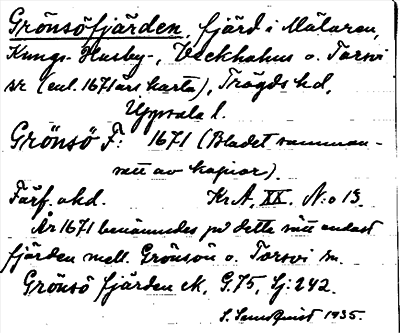 Grönsöfjärden, fjärd i Mälaren,
Kungs-Husby-, Veckholms o. Torsvi
sr (enl. 1671 års karta), Trögds hd,
Uppsala l.
Grönsö F: 1671 (Bladet samman-
satt av kopior).
Förf. okd. Kr.A. XX. N:o 13.
År 1671 benämndes på detta sätt endast
fjärden mell. Grönsön o. Torsvi sn.
Grönsö fjärden ek. G.75, Sj:242.
S. Sundquist 1935.